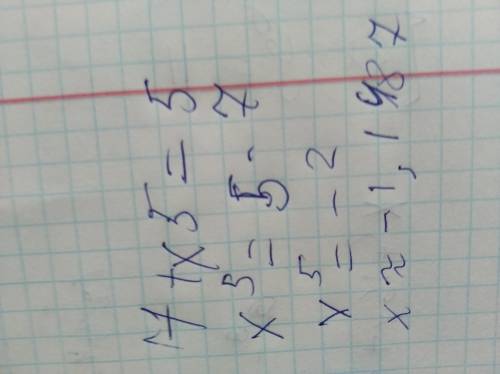 7 + x⁵ = 5
x⁵ = 5 - 7
x⁵ = - 2
x ≈ -1,1487